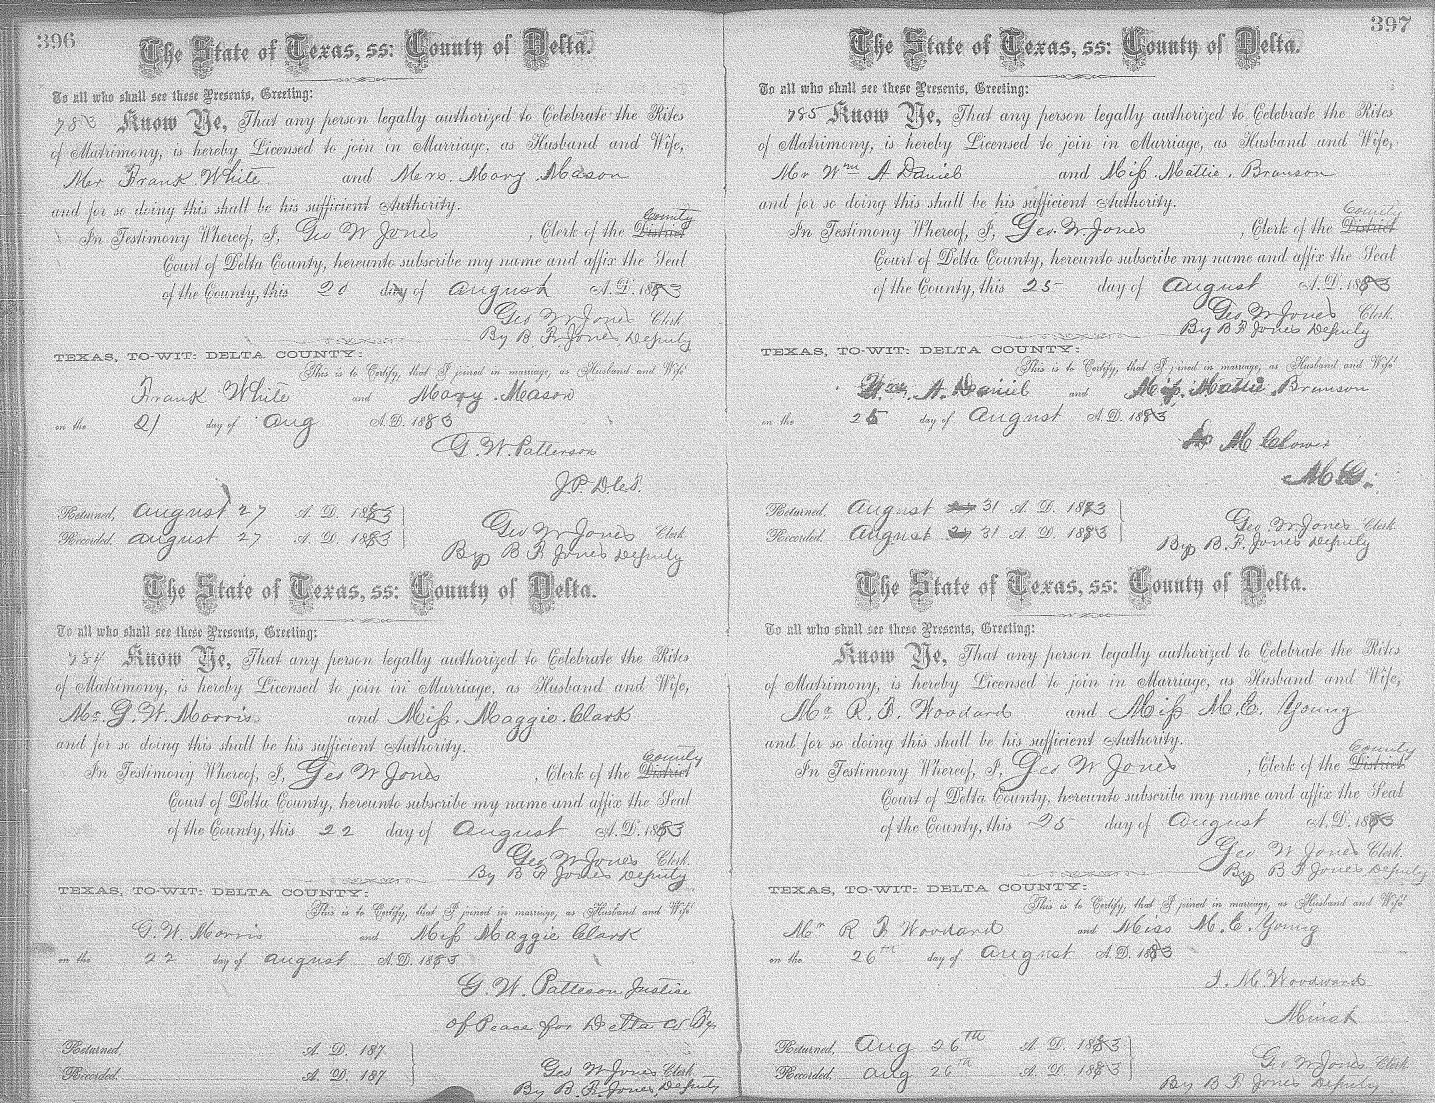 396
The State of Texas, ss: County of Delta.
To all who shall see these Presents, Greeting:
783 Know Ye, That any person legally authorized to Celebrate the Rites
of Matrimony, is hereby Licensed to join in Marriage, as Husband and Wife,
Mr Frank White and Mrs. Mary Mason
and for so doing this shall be his sufficient Authority.
County
In Testimony Whereof, I, Geo W Jones, Clerk of the District
Court of Delta County, hereunto subscribe my name and affix the Seal
of the County, this 20 day of August A.D. 1883
Geo W Jones Clerk
By B F Jones Deputy
TEXAS, TO-WIT: DELTA COUNTY:
This is to Certify, that I joined in marriage, as Husband and Wife
Frank White and Mary Mason
on the 21 day of Aug A.D. 1883
G. W. Patterson
J.P.D.Co.
Returned, August 27 A. D. 1883
Recorded, August 27 A. D. 1883
Geo W Jones Clerk
By B F Jones Deputy
The State of Texas, ss: County of Delta.
To all who shall see these Presents, Greeting:
784 Know Ye, That any person legally authorized to Celebrate the Rites
of Matrimony, is hereby Licensed to join in Marriage, as Husband and Wife,
Mr G. W. Morris and Miss. Maggie Clark
and for so doing this shall be his sufficient Authority.
County
In Testimony Whereof, I, Geo W Jones, Clerk of the District
Court of Delta County, hereunto subscribe my name and affix the Seal
of the County, this 22 day of August A.D. 1883
Geo W Jones Clerk.
By B F Jones Deputy
TEXAS, TO-WIT: DELTA COUNTY:
This is to Certify, that I joined in marriage, as Husband and Wife
G. W. Morris and Miss Maggie Clark
on the 22 day of August A.D. 1883
G. W. Patteson Justice
of Peace for Delta Co
Returned, A. D. 187
Recorded, A. D. 187
Geo W Jones Clerk
By B. F. Jones Deputy
397
The State of Texas, ss: County of Delta.
To all who shall see these Presents, Greeting:
785 Know Ye, That any person legally authorized to Celebrate the Rites
of Matrimony, is hereby Licensed to join in Marriage, as Husband and Wife,
Mr Wm A Daniel and Miss Mattie Branson
and for so doing this shall be his sufficient Authority.
County
In Testimony Whereof, I, Geo. W Jones, Clerk of the District
Court of Delta County, hereunto subscribe my name and affix the Seal
of the County, this 25 day of August A.D. 1883
Geo W Jones Clerk.
By B F Jones Deputy
TEXAS, TO-WIT: DELTA COUNTY:
This is to Certify, that I joined in marriage, as Husband and Wife
Wm. A. Daniel and Miss. Mattie Branson
on the 25 day of August A.D. 1883
M Clower
M G.
Returned, August 31 A. D. 1883
Recorded, August 31 A. D. 1883
Geo W Jones Clerk
By B. F. Jones Deputy
The State of Texas, ss: County of Delta.
To all who shall see these Presents, Greeting:
Know Ye, That any person legally authorized to Celebrate the Rites
of Matrimony, is hereby Licensed to join in Marriage, as Husband and Wife,
Mr R. F. Woodard and Miss M. E. Young
and for so doing this shall be his sufficient Authority.
County
In Testimony Whereof, I, Geo W Jones, Clerk of the District
Court of Delta County, hereunto subscribe my name and affix the Seal
of the County, this 25 day of August A.D. 1883
Geo W Jones Clerk.
By B F Jones Deputy
TEXAS, TO-WIT: DELTA COUNTY:
This is to Certify, that I joined in marriage, as Husband and Wife
Mr R F Woodard and Miss M. E. Young
on the 26th day of August A.D. 1883
J. M. Woodward
Minst
Returned, Aug 26th A. D. 1883
Recorded, Aug 26th A. D. 1883
Geo W Jones Clerk
By B F Jones Deputy